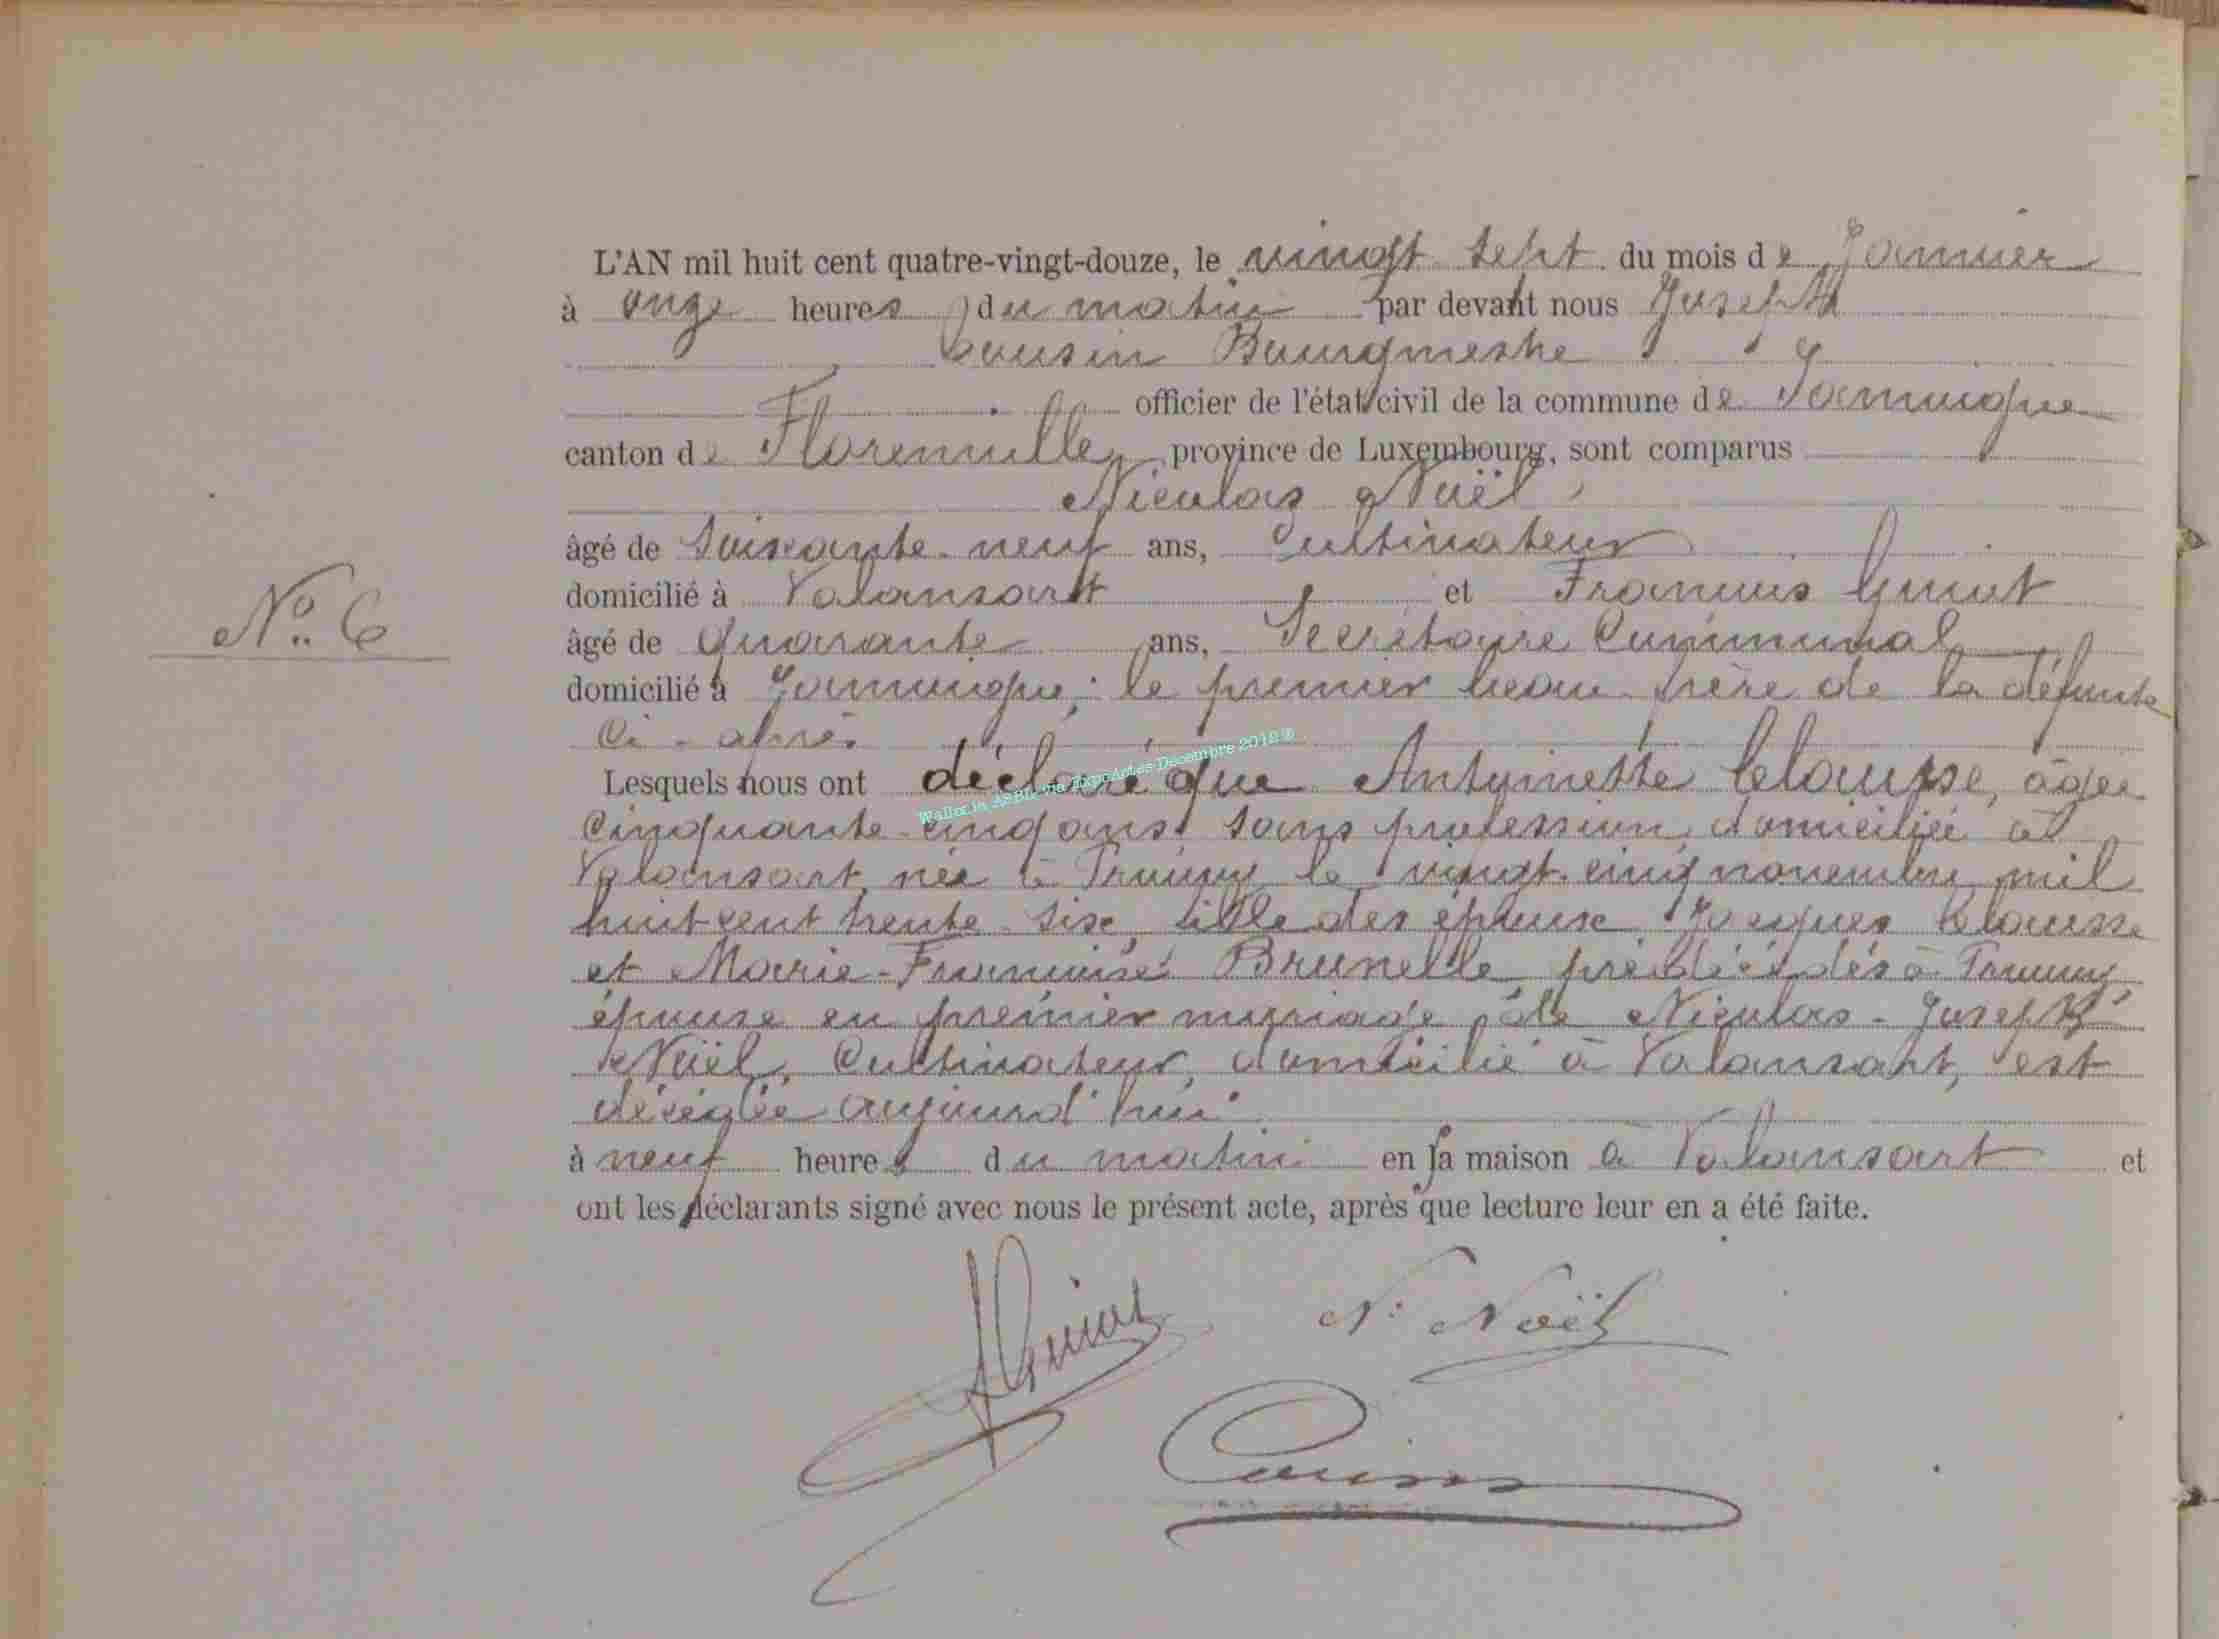 L'AN mil huit cent quatre-vingt-douze, le vingt sept du mois de Janvier
à onze heures du matin par devant nous Joseph
Cousin Bourgmestre
officier de l'état civil de la commune de Jamoigne
canton de Florenville, province de Luxembourg, sont comparus
Nicolas Noël
âgé de Soixante-neuf ans, Cultivateur
domicilié à Valansart et François Guiot
No. 6
âgé de quarante ans, Secrétaire Communal
domicilié à Jamoigne; le premier beau-frère de la défunte
Ci-après
Lesquels nous ont déclaré que Antoinette Clausse, âgée
Wallonia ASBL via ExpoActes Décembre 2018 ®
Cinquante-cinq ans, sans profession, domiciliée à
Valansart, née à le vingt-cinq novembre mil
huit cent trente-six, fille des époux Jacques Clausse
et Marie-Françoise Brunelle, prédécédés à
épouse en premier mariage de Nicolas-Joseph
Noël, Cultivateur, domicilié à Valansart, est
décédée aujourd'hui
à neuf heures du matin en sa maison à Valansart et
ont les déclarants signé avec nous le présent acte, après que lecture leur en a été faite.
N. Noël
FGuiot
Cousin